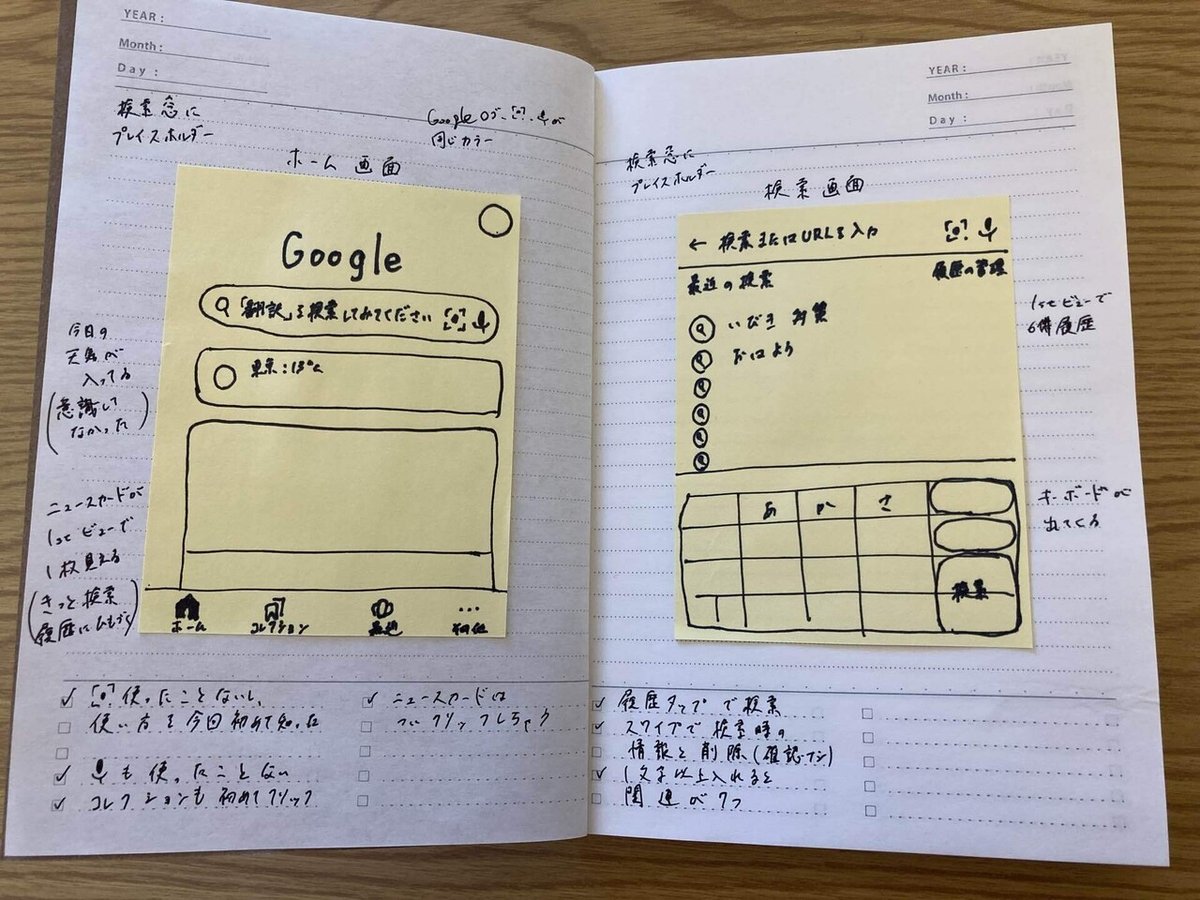 YEAR :
Month :
Day :
検索窓に
プレイスホルダー
Googleロゴ、
が
同じカラー
ホーム 画面
Google
「翻訳」を検索してみてください
東京:13℃
今日の
天気が
入ってる
(意識して
なかった)
ニュースカードが
1stビューで
1枚見える
(きっと検索
履歴にひもづく)
ホーム
コレクション
最近
その他
使ったことないし、
使い方を今回初めて知った
も使ったことない
コレクションも初めてクリック
ニュースカードは
ついクリックしちゃう
YEAR :
Month :
Day :
検索窓に
プレイスホルダー
検索画面
← 検索またはURLを入力
最近の検索
履歴の管理
いびき 対策
おはよう
1stビューで
6件履歴
あ か さ
検索
キーボードが
出てくる
履歴タップで検索
スワイプで検索時の
情報を削除(確認アリ)
1文字以上入れると
関連が7つ